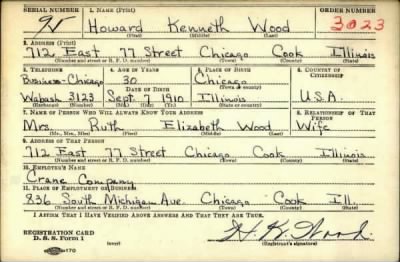 SERIAL NUMBER 1. NAME (Print) ORDER NUMBER
Howard Kenneth Wood 3023
(First) (Middle) (Last)
2. ADDRESS (Print)
712 East 77 Street Chicago Cook Illinois
(Number and street or R. F. D. number) (Town) (County) (State)
3. TELEPHONE 4. AGE IN YEARS 5. PLACE OF BIRTH 6. COUNTRY OF CITIZENSHIP
Business-Chicago 30 Chicago
DATE OF BIRTH (Town or county)
Wabash 3123 Sept. 7 1910 Illinois U.S.A.
(Exchange) (Number) (Mo.) (Day) (Yr.) (State or country)
7. NAME OF PERSON WHO WILL ALWAYS KNOW YOUR ADDRESS 8. RELATIONSHIP OF THAT PERSON
Mrs. Ruth Elizabeth Wood Wife
(Mr., Mrs., Miss) (First) (Middle) (Last)
9. ADDRESS OF THAT PERSON
712 East 77 Street Chicago Cook Illinois
(Number and street or R. F. D. number) (Town) (County) (State)
10. EMPLOYER'S NAME
Crane Company
11. PLACE OF EMPLOYMENT OR BUSINESS
836 South Michigan Ave. Chicago Cook Ill.
(Number and street or R. F. D. number) (Town) (County) (State)
I AFFIRM THAT I HAVE VERIFIED ABOVE ANSWERS AND THAT THEY ARE TRUE.
REGISTRATION CARD
D. S. S. Form 1 (over) H. K. Wood
(Registrant's signature)